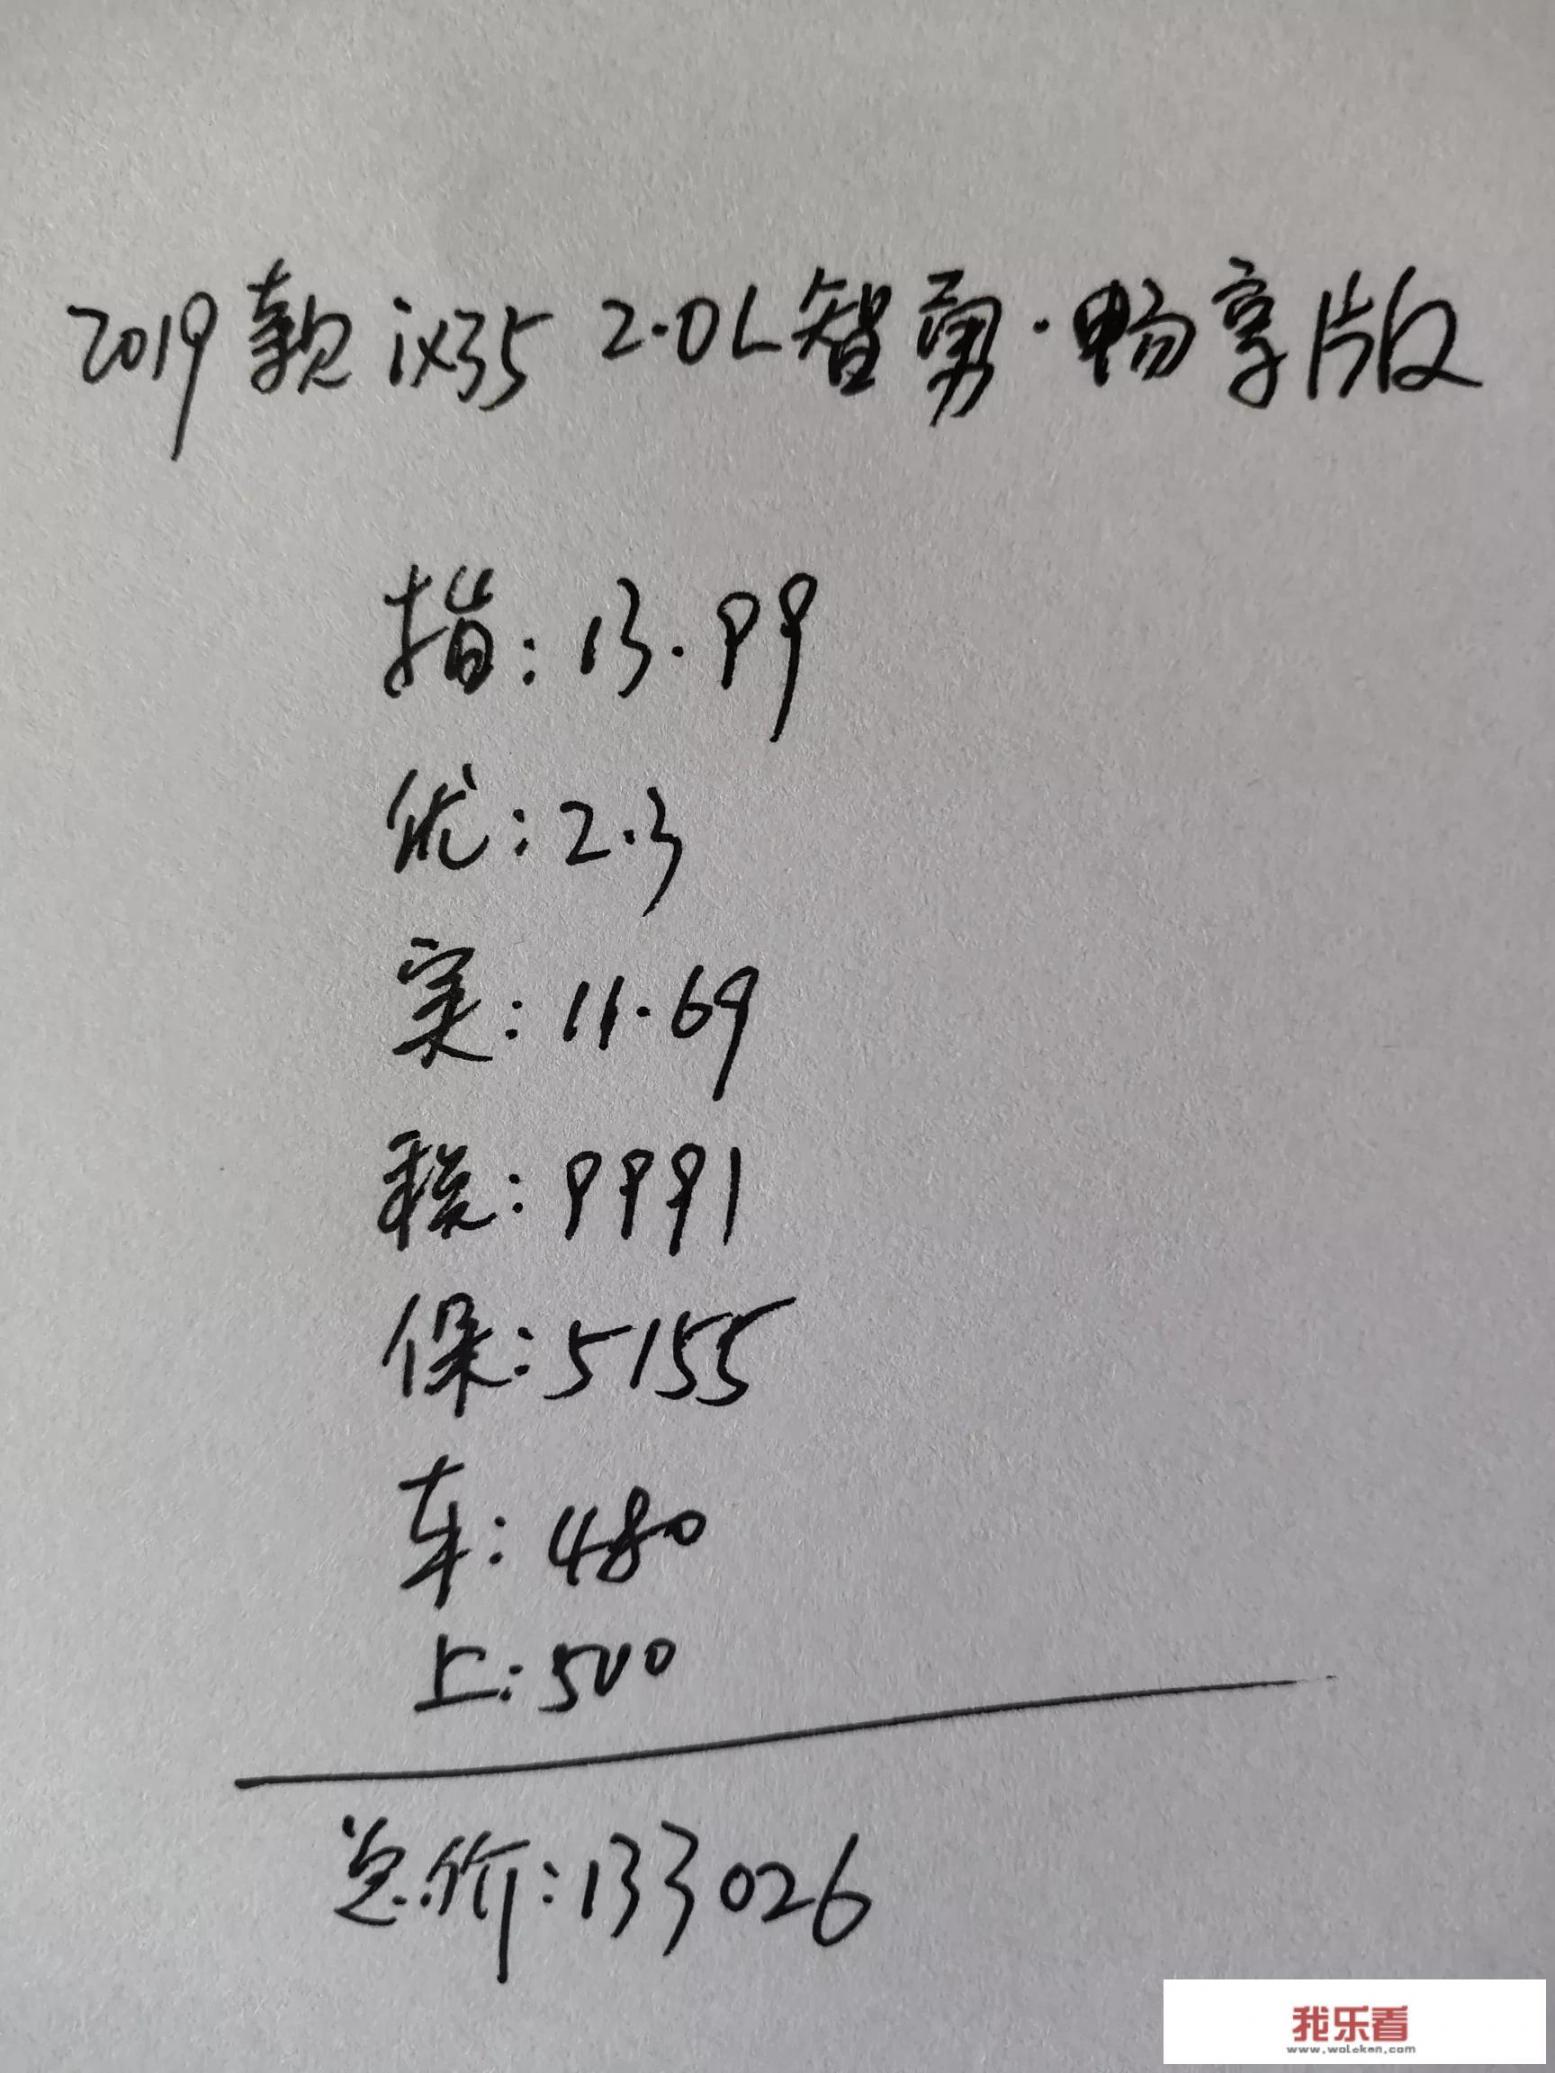 2019款ix35 2.0L智勇·畅享版
指:13.99
优:2.3
实:11.69
税:9991
保:5155
车:480
上:500
总价:133026
我乐看
www.woleken.com